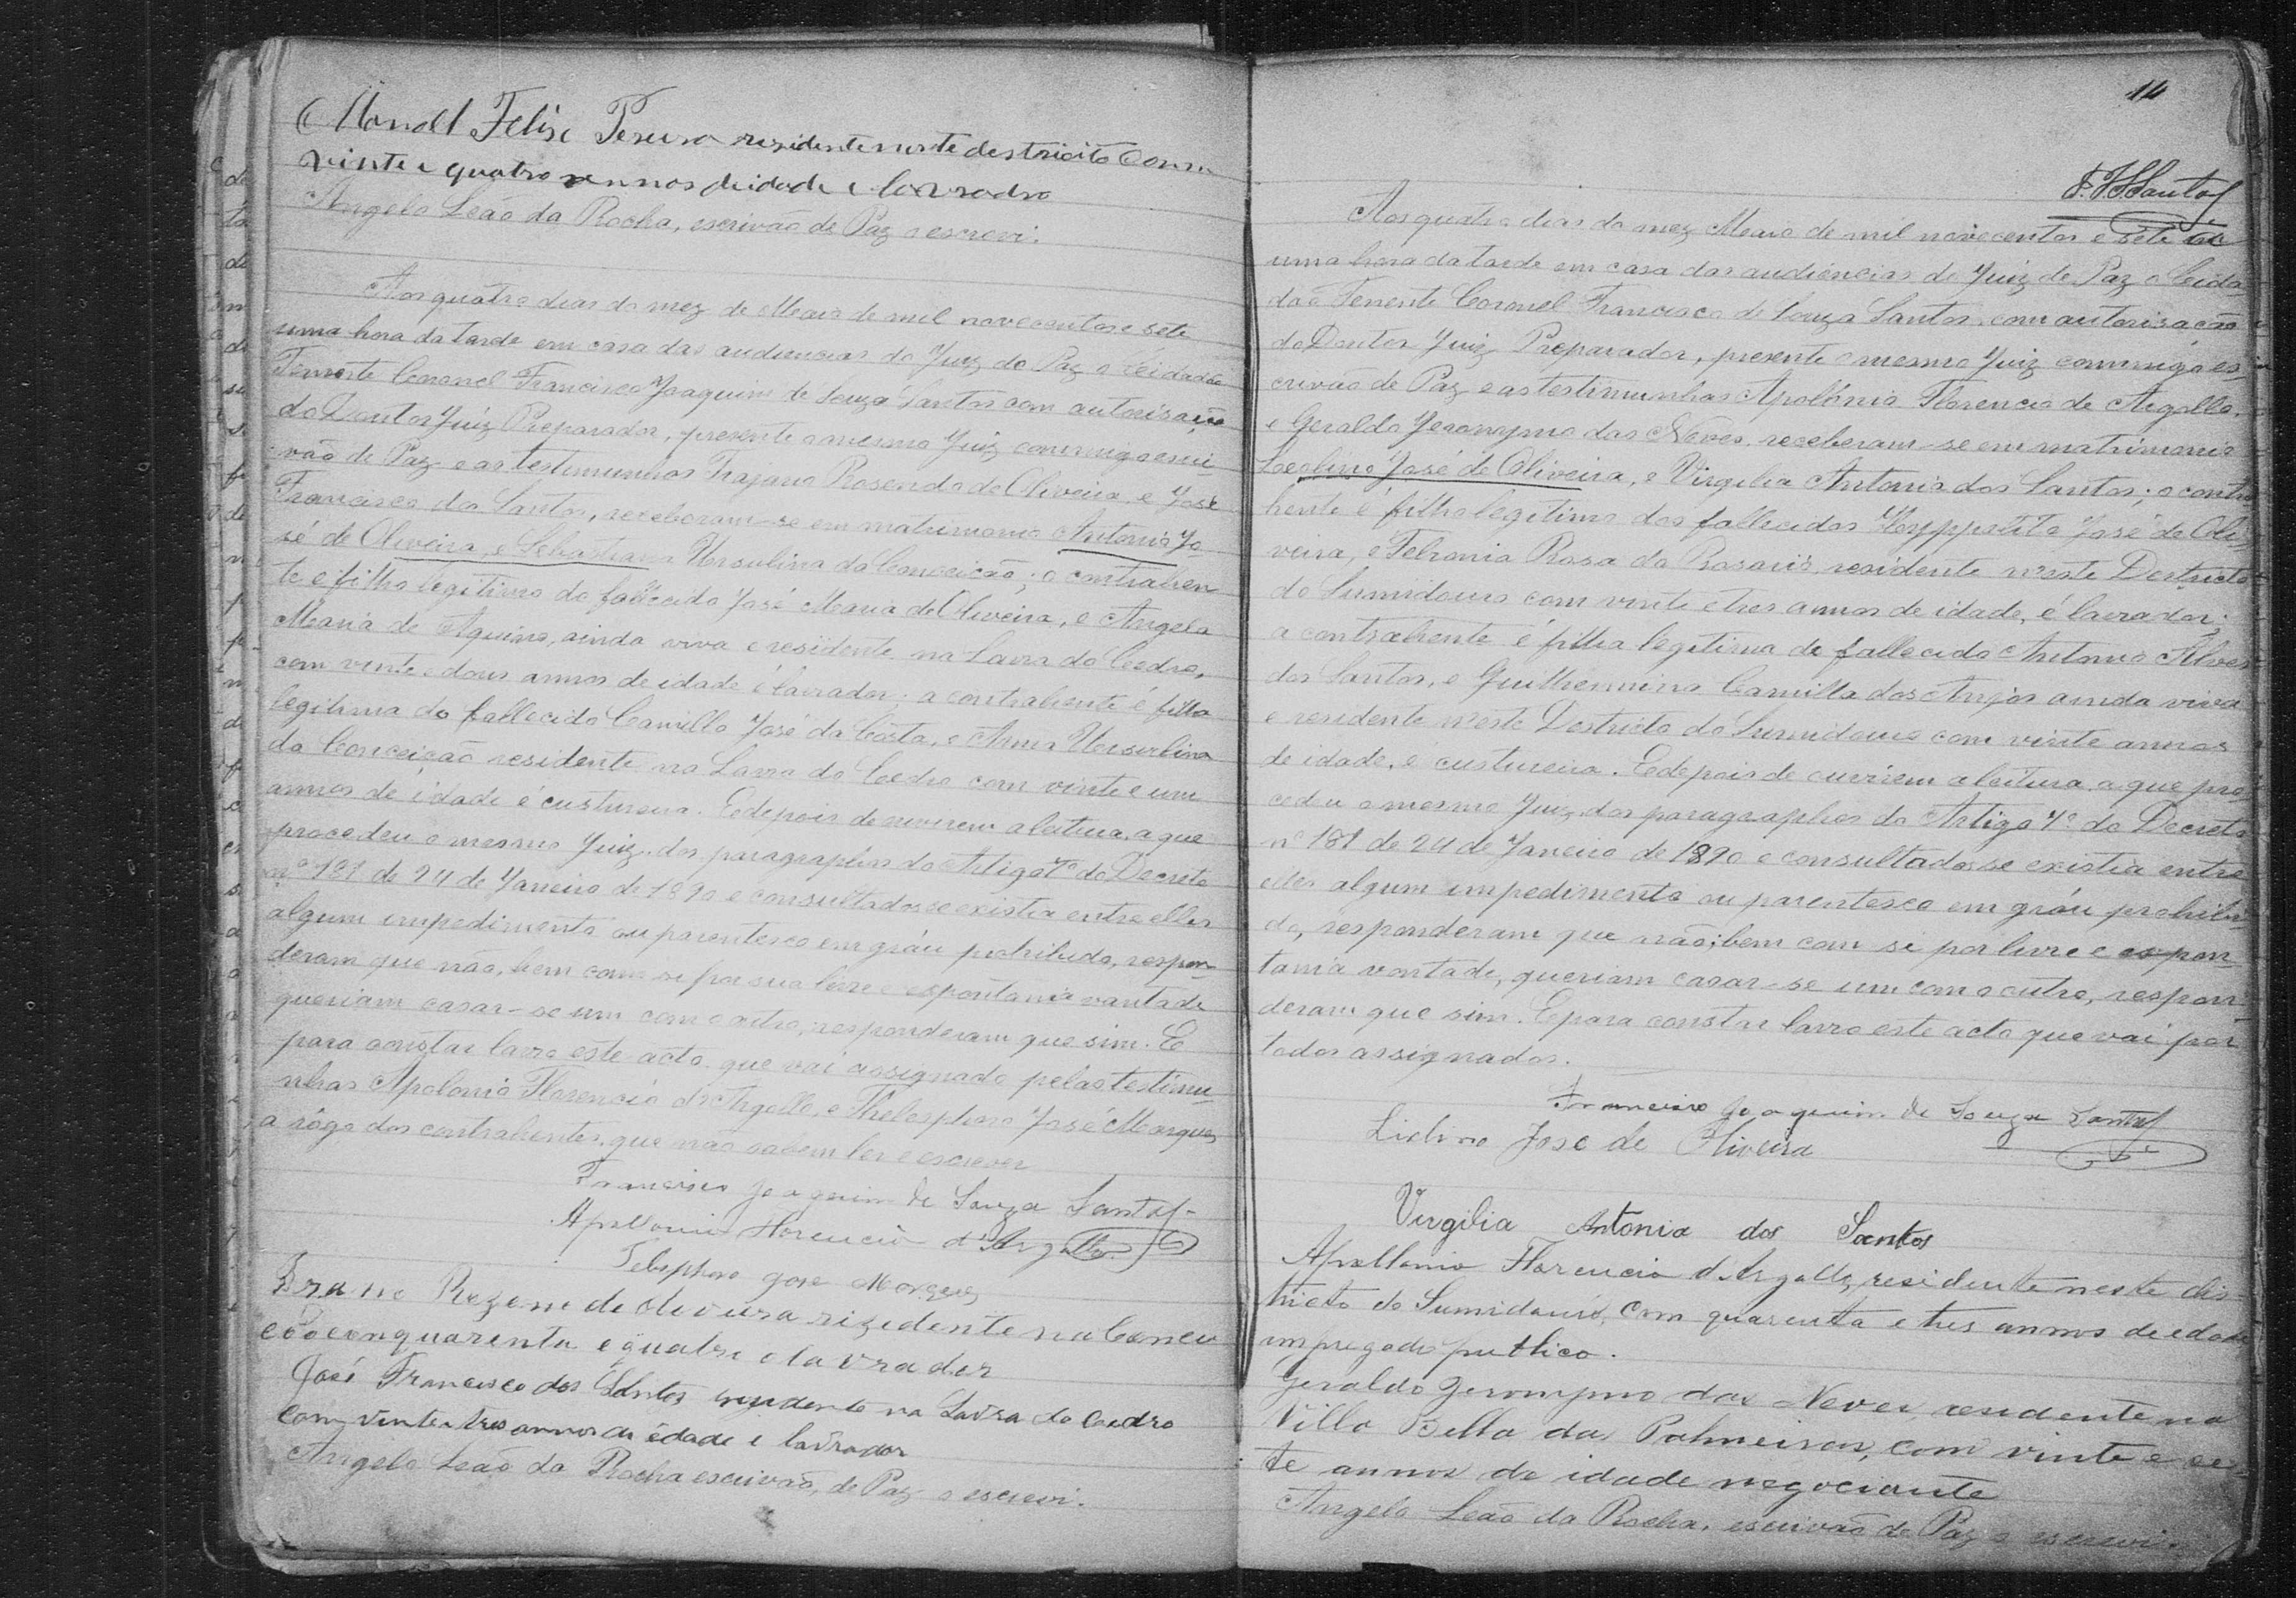 Manoel Felix Pereira residente neste destricito Com
vinte e quatro annos de idade e lavrador
Angelo Leão da Rocha, escrivão de Paz o escrevi.
Aos quatro dias do mez de Maio de mil novecentos e sete
uma hora da tarde em casa das audiencias do Juiz de Paz o Cidadão
Tenente Coronel Francisco Joaquim de Souza Santos com autorisação
do Doutor Juiz Preparador, presente o mesmo Juiz commigo escri
vão de Paz e as testimunhas Trajano Rosendo de Oliveira, e José
Francisco dos Santos, receberam-se em matrimonio Antonio Jo
sé de Oliveira, e Sebastiana Ursulina da Conceição; o contrahen
te é filho legitimo do fallecido José Maria de Oliveira, e Angela
Maria de Aquino, ainda viva e residente na Lavra do Coedro,
com vinte e dous annos de idade é lavrador; a contrahente é filha
legitima do fallecido Camillo José da Costa, e Anna Ursulina
da Conceição residente na Lavra do Coedro com vinte e um
annos de idade é custureira. E depois de ouvirem a leitura, a que
procedeu o mesmo Juiz dos paragraphos do Artigo 7º do Decreto
nº 181 de 24 de Janeiro de 1890 e consultados se existia entre elles
algum impedimento ou parentesco em gráu prohibido, respon-
deram que não, bem como se por sua livre e espontania vontade
queriam casar-se um com o outro, responderam que sim. E
para constar lavro este acto que vai assignado pelas testimu-
nhas Apolonio Florencio d'Argollo, e Thelesphoro José Marques
a rôgo dos contrahentes, que não sabem ler e escrever
Francisco Joaquim de Souza Santos
Apollonio Florencio d'Argollo
Telesphoro Jose Marques
Rozeno de oliveira rizidente na Concei
ção con quarenta e quatro e lavrador
José Francisco dos Santos residente na Lavra do Coedro
Com vinte e tres annos de edade e lavrador
Angelo Leão da Rocha escrivão, de Paz o escrevi.
14
F. J. S. Santos
Aos quatro dias do mez Maio de mil novecentos e sete
uma hora da tarde em casa das audiencias do Juiz de Paz o Cida-
dão Tenente Coronel Francisco de Souza Santos, com autorisação
do Doutor Juiz Preparador, presente o mesmo Juiz commigo es-
crivão de Paz e as testimunhas Apolonio Florencio de Argollo,
e Geraldo Jeronymo das Neves, receberam-se em matrimonio
José de Oliveira, e Virgilia Antonia dos Santos; o contra
hente é filho legitimo dos fallecidos Hyppolito José de Oli-
veira, e Felronia Rosa do Rosario residente n'este Destricto
do Sumidouro com vinte e tres annos de idade, é lavrador;
a contrahente é filha legitima do fallecido Antonio Alves
dos Santos, e Guilhermina Camilla dos Anjos ainda viva
e residente n'este Destricto do Sumidouro com vinte annos
de idade, é custureira. E depois de ouvirem a leitura, a que pro
cedeu o mesmo Juiz, dos paragraphos do Artigo 7º do Decreto
nº 181 de 24 de Janeiro de 1890 e consultados se existia entre
elles algum impedimento ou parentesco em gráu prohibi
do, responderam que não; bem com si por livre e espon-
tania vontade, queriam casar-se um com o outro, respon
deram que sim. E para constar lavro este acto que vai por
todos assignados.
Francisco Joaquim de Souza Santos
Lidivino Jose de Oliveira
Virgilia Antonia dos Santos
Apollonio Florencio d'Argollo, residente neste dis-
tricto do Sumidouro, com quarenta e tres annos de edade
impregado publico.
Geraldo Jeronymo das Neves, residente na
Villa Bella das Palmeiras, com vinte e se-
te annos de idade negociante
Angelo Leão da Rocha, escrivão de Paz o escrevi.